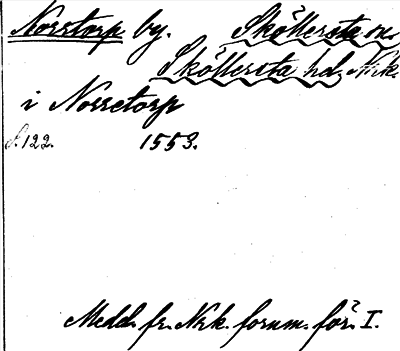 Norrtorp by. Sköllersta sn.
Sköllersta hd. Nrk.
i Norretorp
S. 122. 1553.
Medd. fr. Nrk. fornm. för. I.